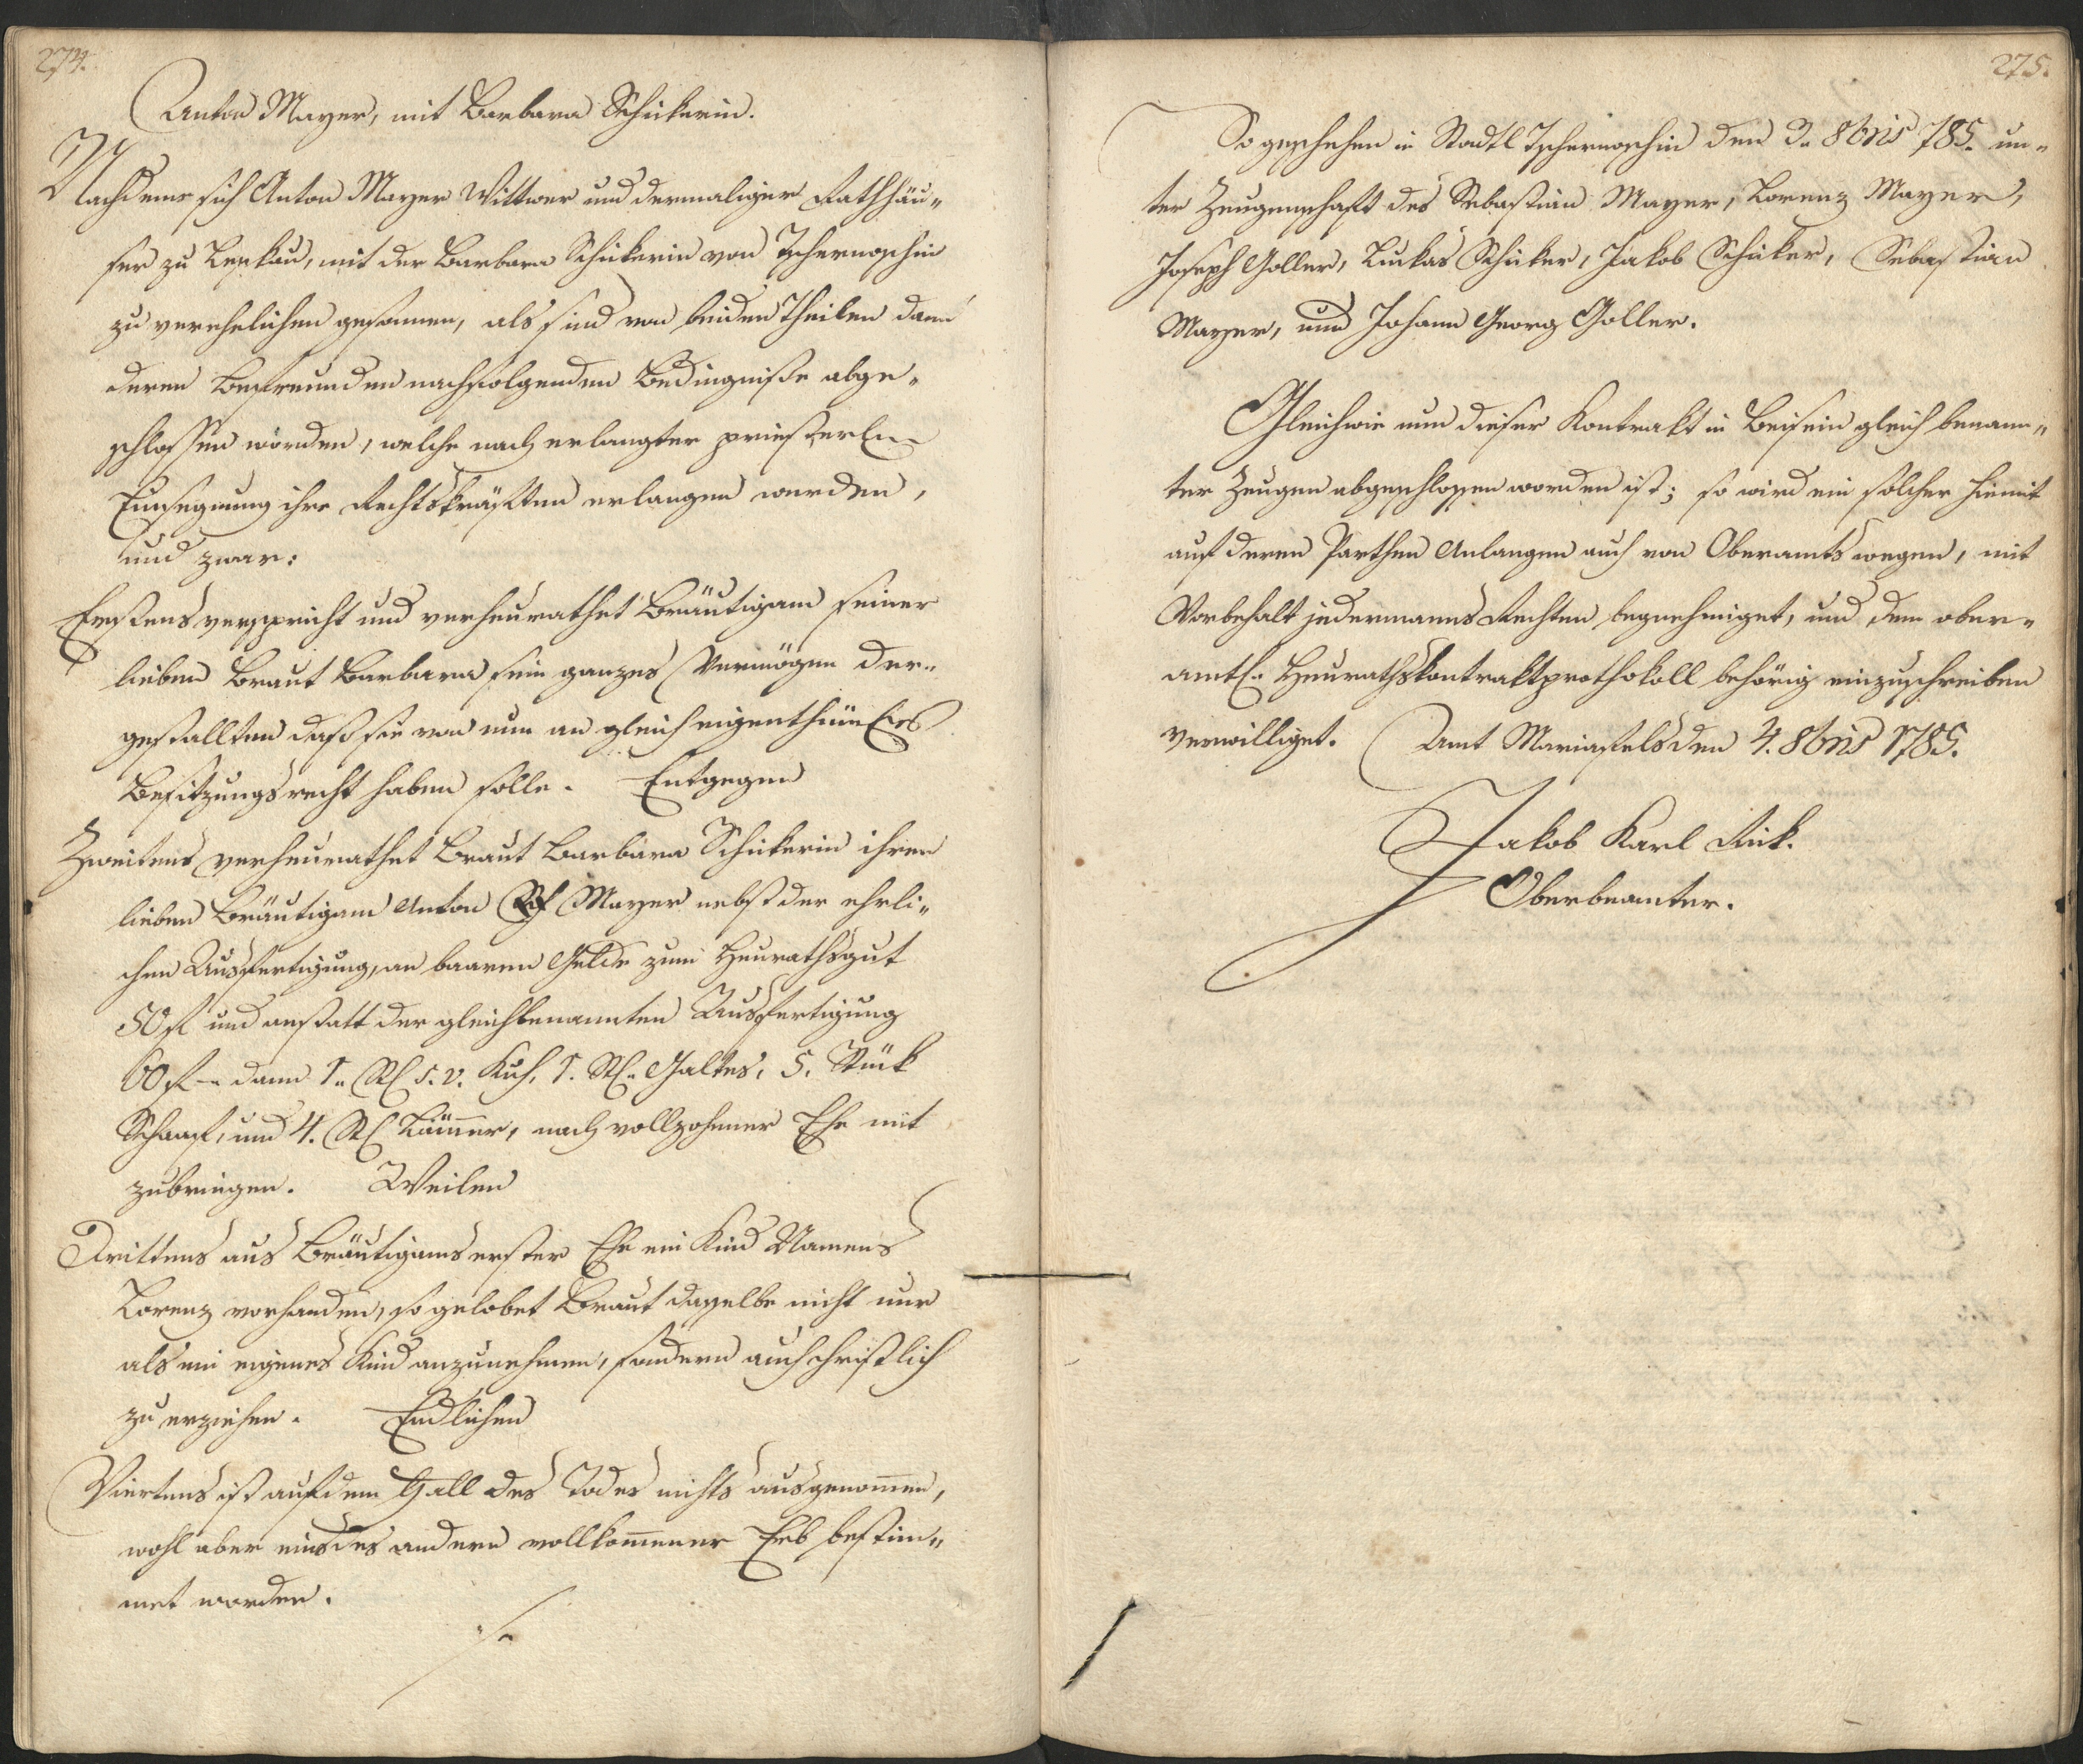 274.
Anton Mayer, mit Barbara Schickerin.
Nachdeme sich Anton Mayer Wittwer und dermaliger Rathhäu„
ser zu Leskau, mit der Barbara Schickerin von Tschernoschin
zu verehelichen gesonnen, als sind von beiden Theilen dann
deren Befreunden nachfolgenden Bedingniße abge„
schlossen worden, welche nach erlangter priesterl.
Einsegnung ihre Rechtskräften erlangen werden,
und zwar:
Erstens verspricht und verheurathet Bräutigam seiner
lieben Braut Barbara sein ganzes Vermögen der„
gestallten daß sie von nun an gleich eigenthüml.es
Besitzungsrecht haben solle. Entgegen
Zweitens verheurathet Braut Barbara Schickerin ihren
lieben Bräutigam Anton Mayer nebst der ehrli„
chen Ausfertigung, an baaren Gelde zum Heurathsgut
50 fl und anstatt der gleichbenannten Ausfertigung
60 fl dann 1. Stl s. v. Kuh, 1. Stl. Galtes, 5. Stück
Schaaf, und 4. Stl Lämmer, nach vollzohener Ehe mit
zubringen. Weilen
Drittens aus Bräutigams erster Ehe ein Kind Namens
Lorenz vorhanden, so gelobet Braut dasselbe nicht nur
als ein eigenes Kind anzunehmen, sondern auch christlich
zu erziehen. Endlichen
Viertens ist auf dem Fall des Todes nichts ausgenom̅en,
wohl aber eins des andern vollkom̅ener Erb bestim„
met worden.
275.
So geschehen in Stadtl Tschernoschin den 3. 8bris 785. un„
ter Zeugenschaft des Sebastian Mayer, Lorenz Mayer,
Joseph Goller, Luckas Schicker, Jakob Schicker, Sebastian
Mayer, und Johann Georg Goller.
Gleichwie nun dieser Kontrakt in Beisein gleich benann„
ter Zeugen abgeschlossen worden ist; so wird ein solcher hiemit
auf deren Parthen Anlangen auch von Oberamts wegen, mit
Vorbehalt jedermanns Rechten begnehmiget, und dem ober„
amtl. Heurathskontraktprothokoll behörig einzuschreiben
verwilliget. Amt Mariafels den 4. 8bris 1785.
Jakob Karl Rick.
Oberbeamter.